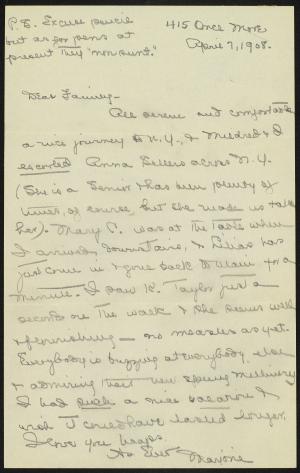 P.S. Excuse pencil
but as for pens at
present they "non sunt."
415 Once More
April 7, 1908.
Dear Family—
All serene and comfortable
a nice journey to N.Y., & Mildred & I
escorted Anna Sellers across N.Y.
(She is a Senior & has been plenty of
times, of course, but she made us take
her). Mary C. was at the table when
I arrived downstairs, & Lilias has
just come in & gone back to again for a
minute. I saw K. Taylor just a
second on the walk & she seems well
& flourishing — no measles as yet.
Everybody is buzzing at everybody else
& admiring their new Spring millinery
I had such a nice vacation &
wish it could have lasted longer.
I love you heaps
As Ever
Marjorie